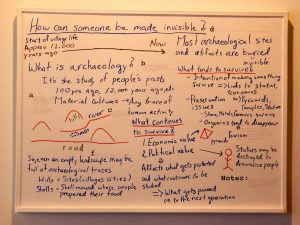 How can someone be made invisible?
Start of village life
Approx 12.000
years ago
Now
d
b
a
What is archaeology?
It's the study of people's pasts
100 yrs ago, 12.000 years ago, etc
Material cultures → Any trace of
human activity
hills
river
e
mounds
road
c
So, even an empty landscape may be
full of archaeological traces
Hills = Sites (villages cities)
Shells = Shell mound where people
prepared their food
What continues
to survive?
1. Economic value
2. Political value
Affects what gets protected
and what continues to be
studied
⇒ What gets passed
on to the next generation
Most archaeological sites
and artifacts are buried
invisible
What tends to survive?
- Intention of making something
survive ⇒ Links to status,
economies
- Preservation issues
Ex) Pyramids,
temples, Statues
- Stone, Metals, Ceramics survive
- Organics tend to disappear
Tourism
Statues may be
destroyed to
demoralise people
Notes: